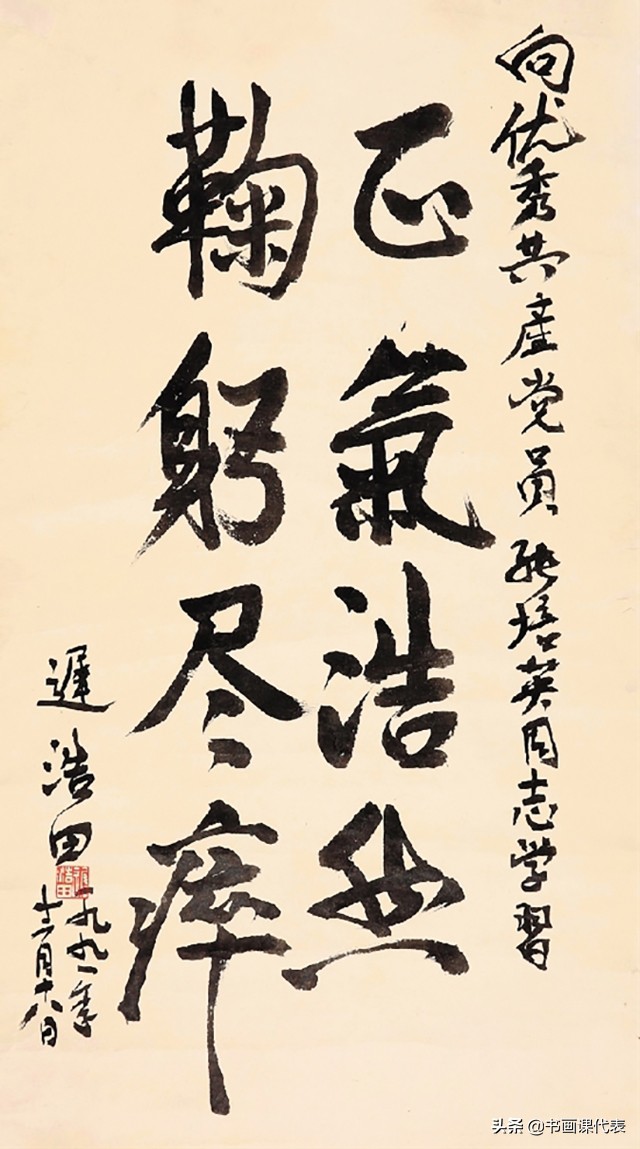 向优秀共產党员 培英同志学習
正氣浩然
鞠躬尽瘁
遲浩田
一九九一年
十二月十八日
头条 @书画课代表